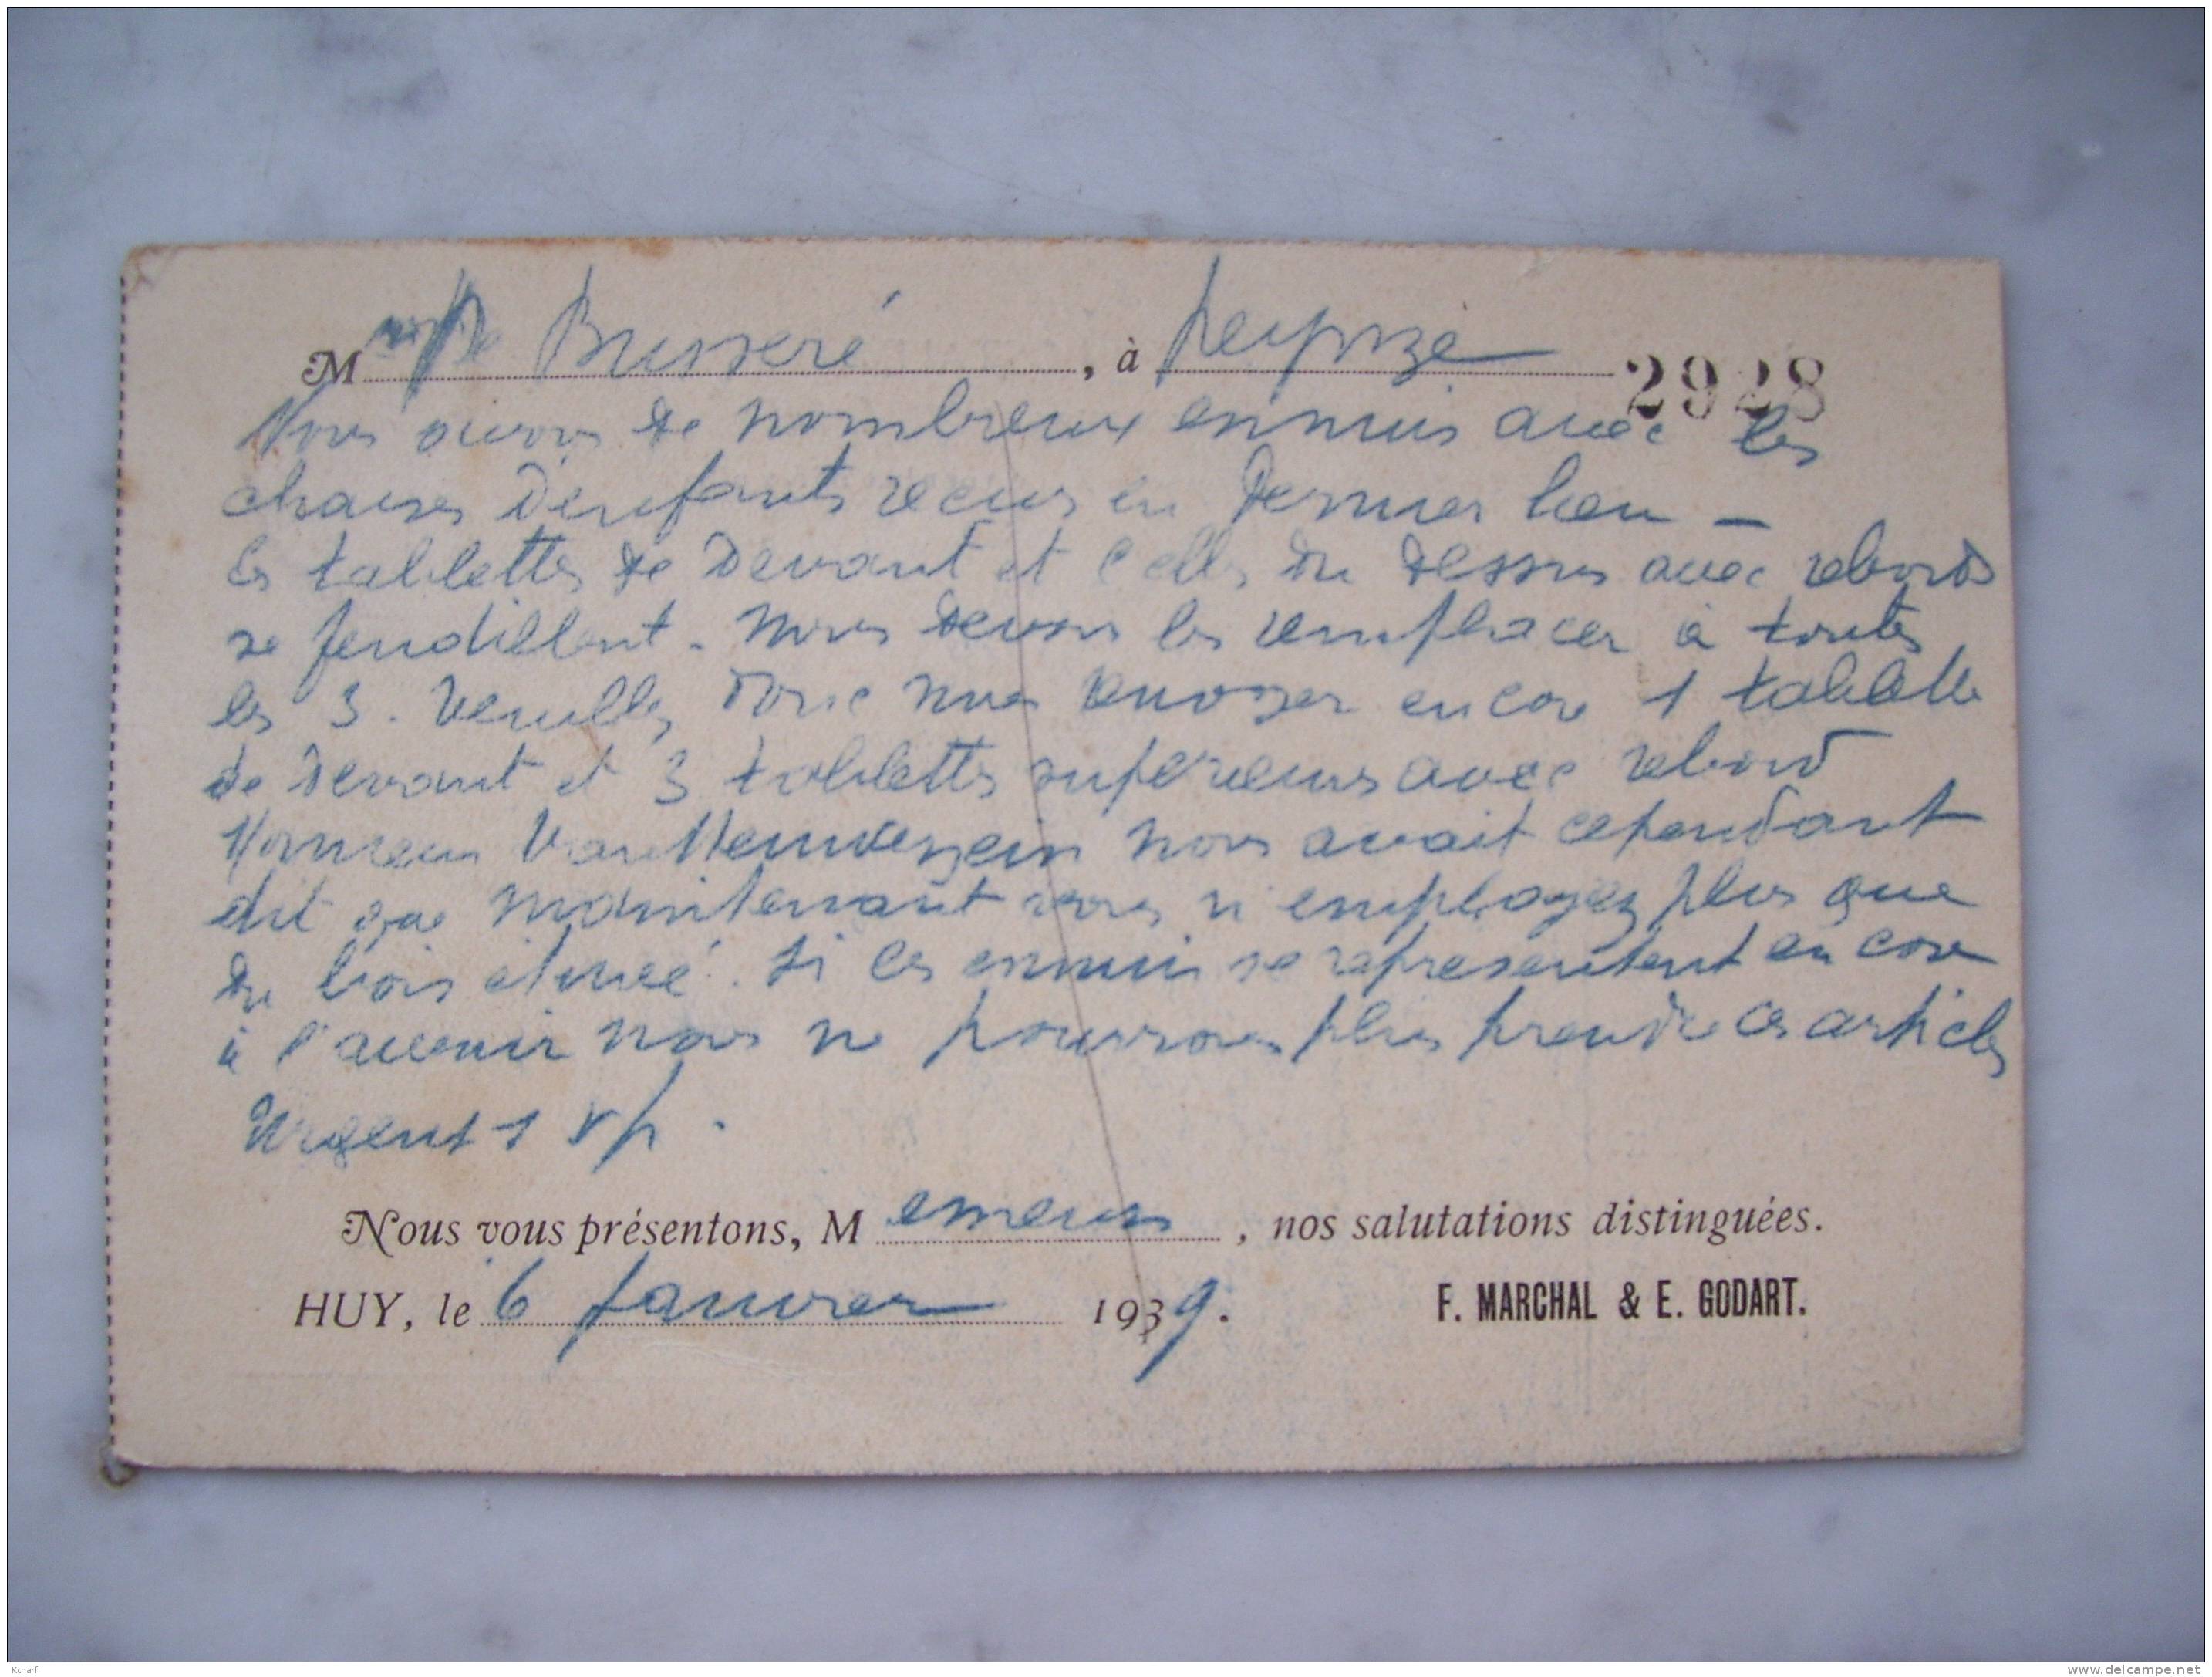 M De Busseré, à Peupozé 2928
Nous avons de nombreux ennuis avec les
chaises d'enfants recus en dernier lieu —
les tablettes de devant et celles du dessus avec rebords
se fendillent. Nous devons les remplacer à toutes
les 3. Veuillez donc nous envoyer encore 1 tablette
de devant et 3 tablettes superieurs avec rebord
Monsieur nous avait cependant
dit que maintenant vous n'employez plus que
du bois étuvé. Si ces ennuis se representent encore
à l'avenir nous ne pourrons plus prendre ces articles
Urgent s v p.
Nous vous présentons, Messieurs, nos salutations distinguées.
HUY, le 6 Janvier 1939. F. MARCHAL & E. GODART.
Kcnarf www.delcampe.net